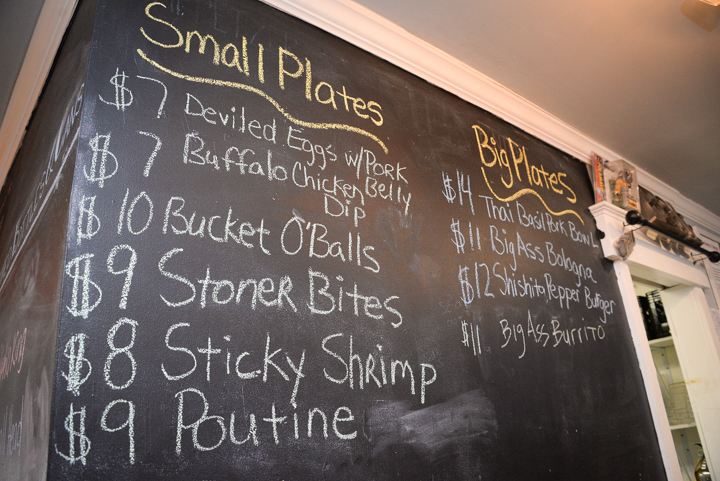 Small Plates
$7 Deviled Eggs w/Pork
Belly
$7 Buffalo Chicken
Dip
$10 Bucket O'Balls
$9 Stoner Bites
$8 Sticky Shrimp
$9 Poutine
Big Plates
$14 Thai Basil Pork Bowl
$11 Big Ass Bologna
$12 Shishito Pepper Burger
$11. Big Ass Burrito